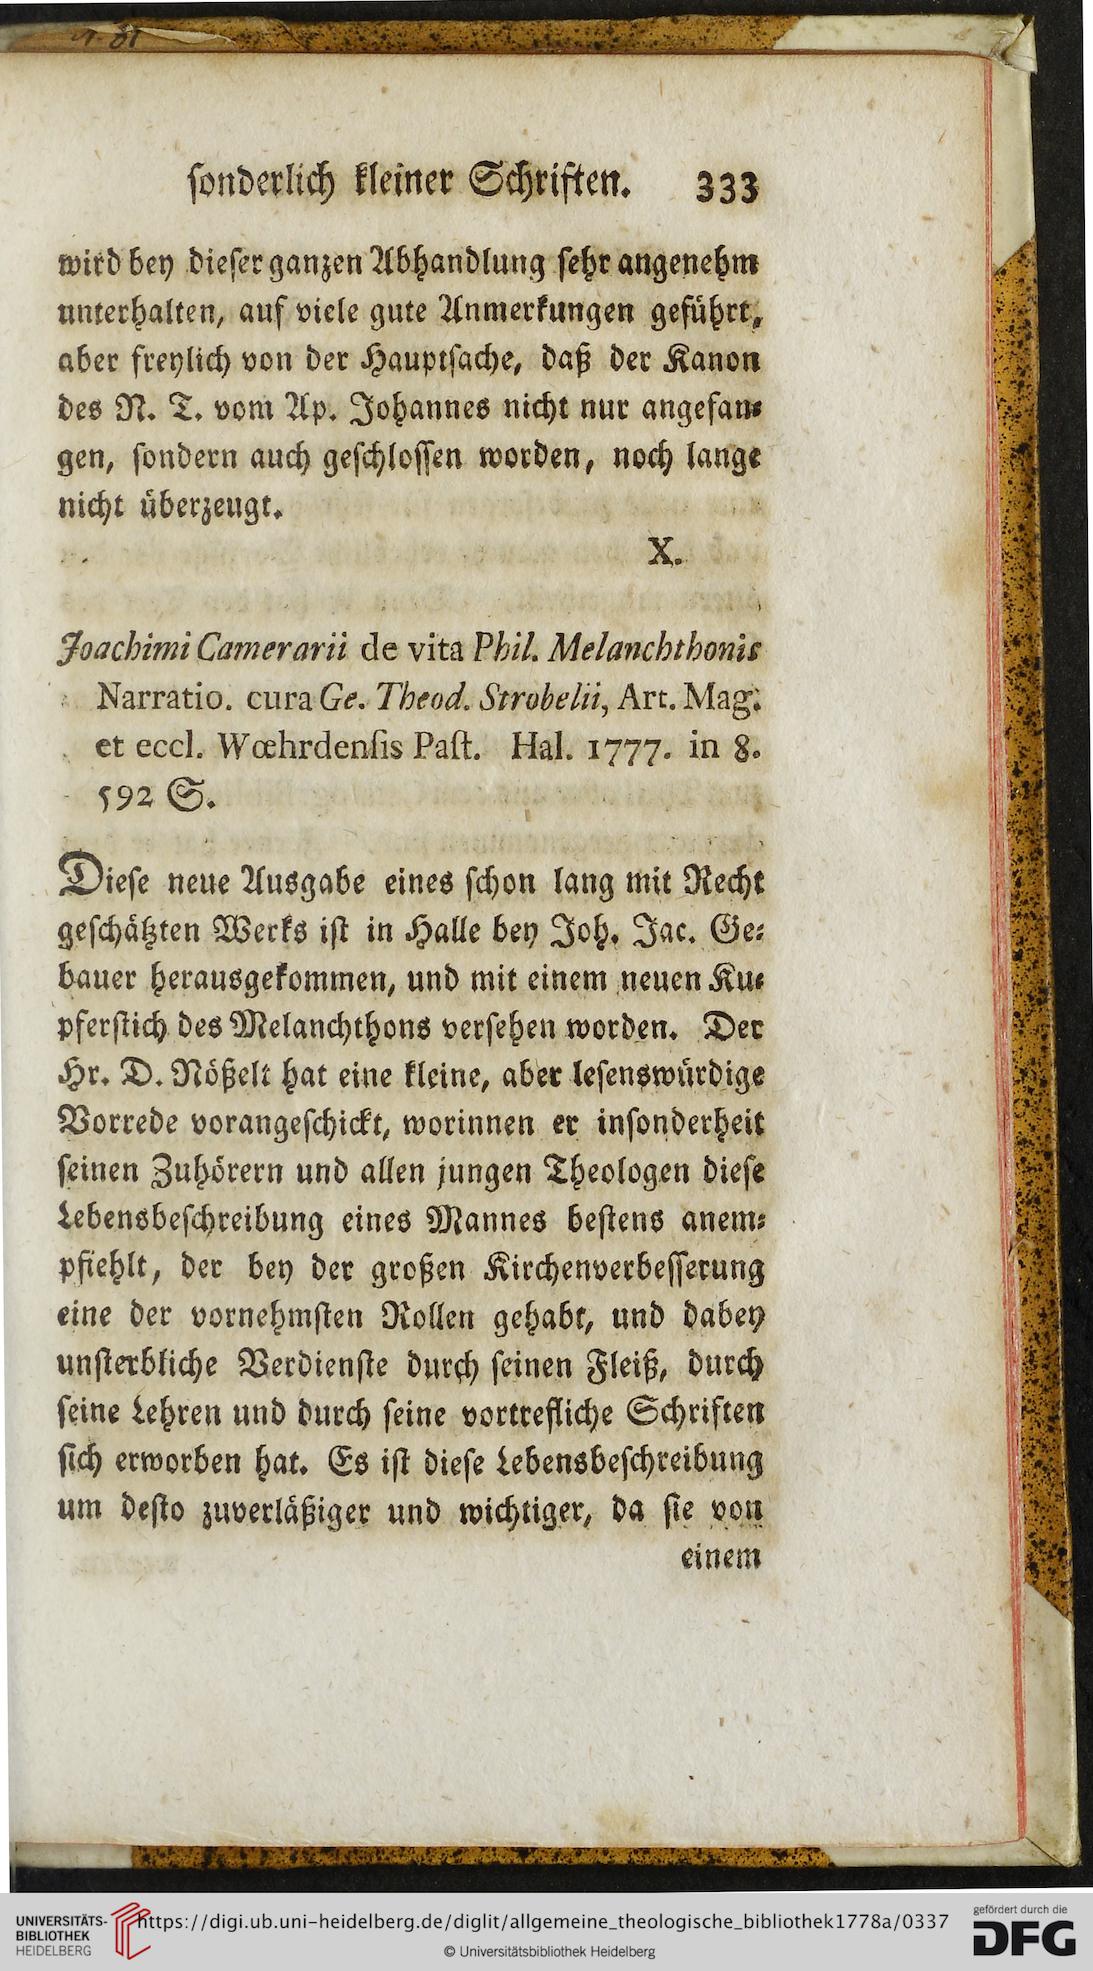 ſonderlich kleiner Schriften. 333
wird bey dieſer ganzen Abhandlung ſehr angenehm
unterhalten, auf viele gute Anmerkungen geführt,
aber freylich von der Hauptſache, daß der Kanon
des N. T. vom Ap. Johannes nicht nur angefan⸗
gen, ſondern auch geſchloſſen worden, noch lange
nicht überzeugt.
X.
Joachimi Camerarii de vita Phil. Melanchthonis
Narratio. cura Ge. Theod. Strobelii, Art. Mag.
et eccl. Wœhrdenſis Paſt. Hal. 1777. in 8.
592 S.
Dieſe neue Ausgabe eines ſchon lang mit Recht
geſchätzten Werks iſt in Halle bey Joh. Jac. Ge⸗
bauer herausgekommen, und mit einem neuen Ku⸗
pferſtich des Melanchthons verſehen worden. Der
Hr. D. Nößelt hat eine kleine, aber leſenswürdige
Vorrede vorangeſchickt, worinnen er inſonderheit
ſeinen Zuhörern und allen jungen Theologen dieſe
Lebensbeſchreibung eines Mannes beſtens anem⸗
pfiehlt, der bey der großen Kirchenverbeſſerung
eine der vornehmſten Rollen gehabt, und dabey
unſterbliche Verdienſte durch ſeinen Fleiß, durch
ſeine Lehren und durch ſeine vortrefliche Schriften
ſich erworben hat. Es iſt dieſe Lebensbeſchreibung
um deſto zuverläßiger und wichtiger, da ſie von
einem
UNIVERSITÄTS-
BIBLIOTHEK
HEIDELBERG
https://digi.ub.uni-heidelberg.de/diglit/allgemeine_theologische_bibliothek1778a/0337
© Universitätsbibliothek Heidelberg
gefördert durch die
DFG